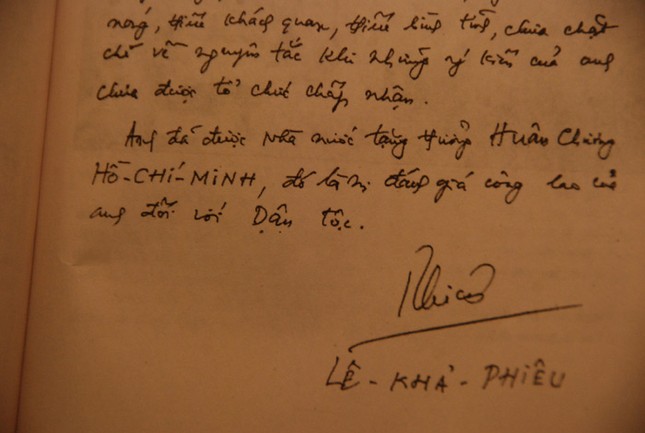 nóng, thiếu khách quan, thiếu bình tĩnh, chưa chặt
chẽ về nguyên tắc khi những ý kiến của anh
chưa được tổ chức chấp nhận.
Anh đã được Nhà nước tặng thưởng Huân Chương
HỒ-CHÍ-MINH, đó là sự đánh giá công lao của
anh đối với Dân tộc.
LÊ - KHẢ - PHIÊU